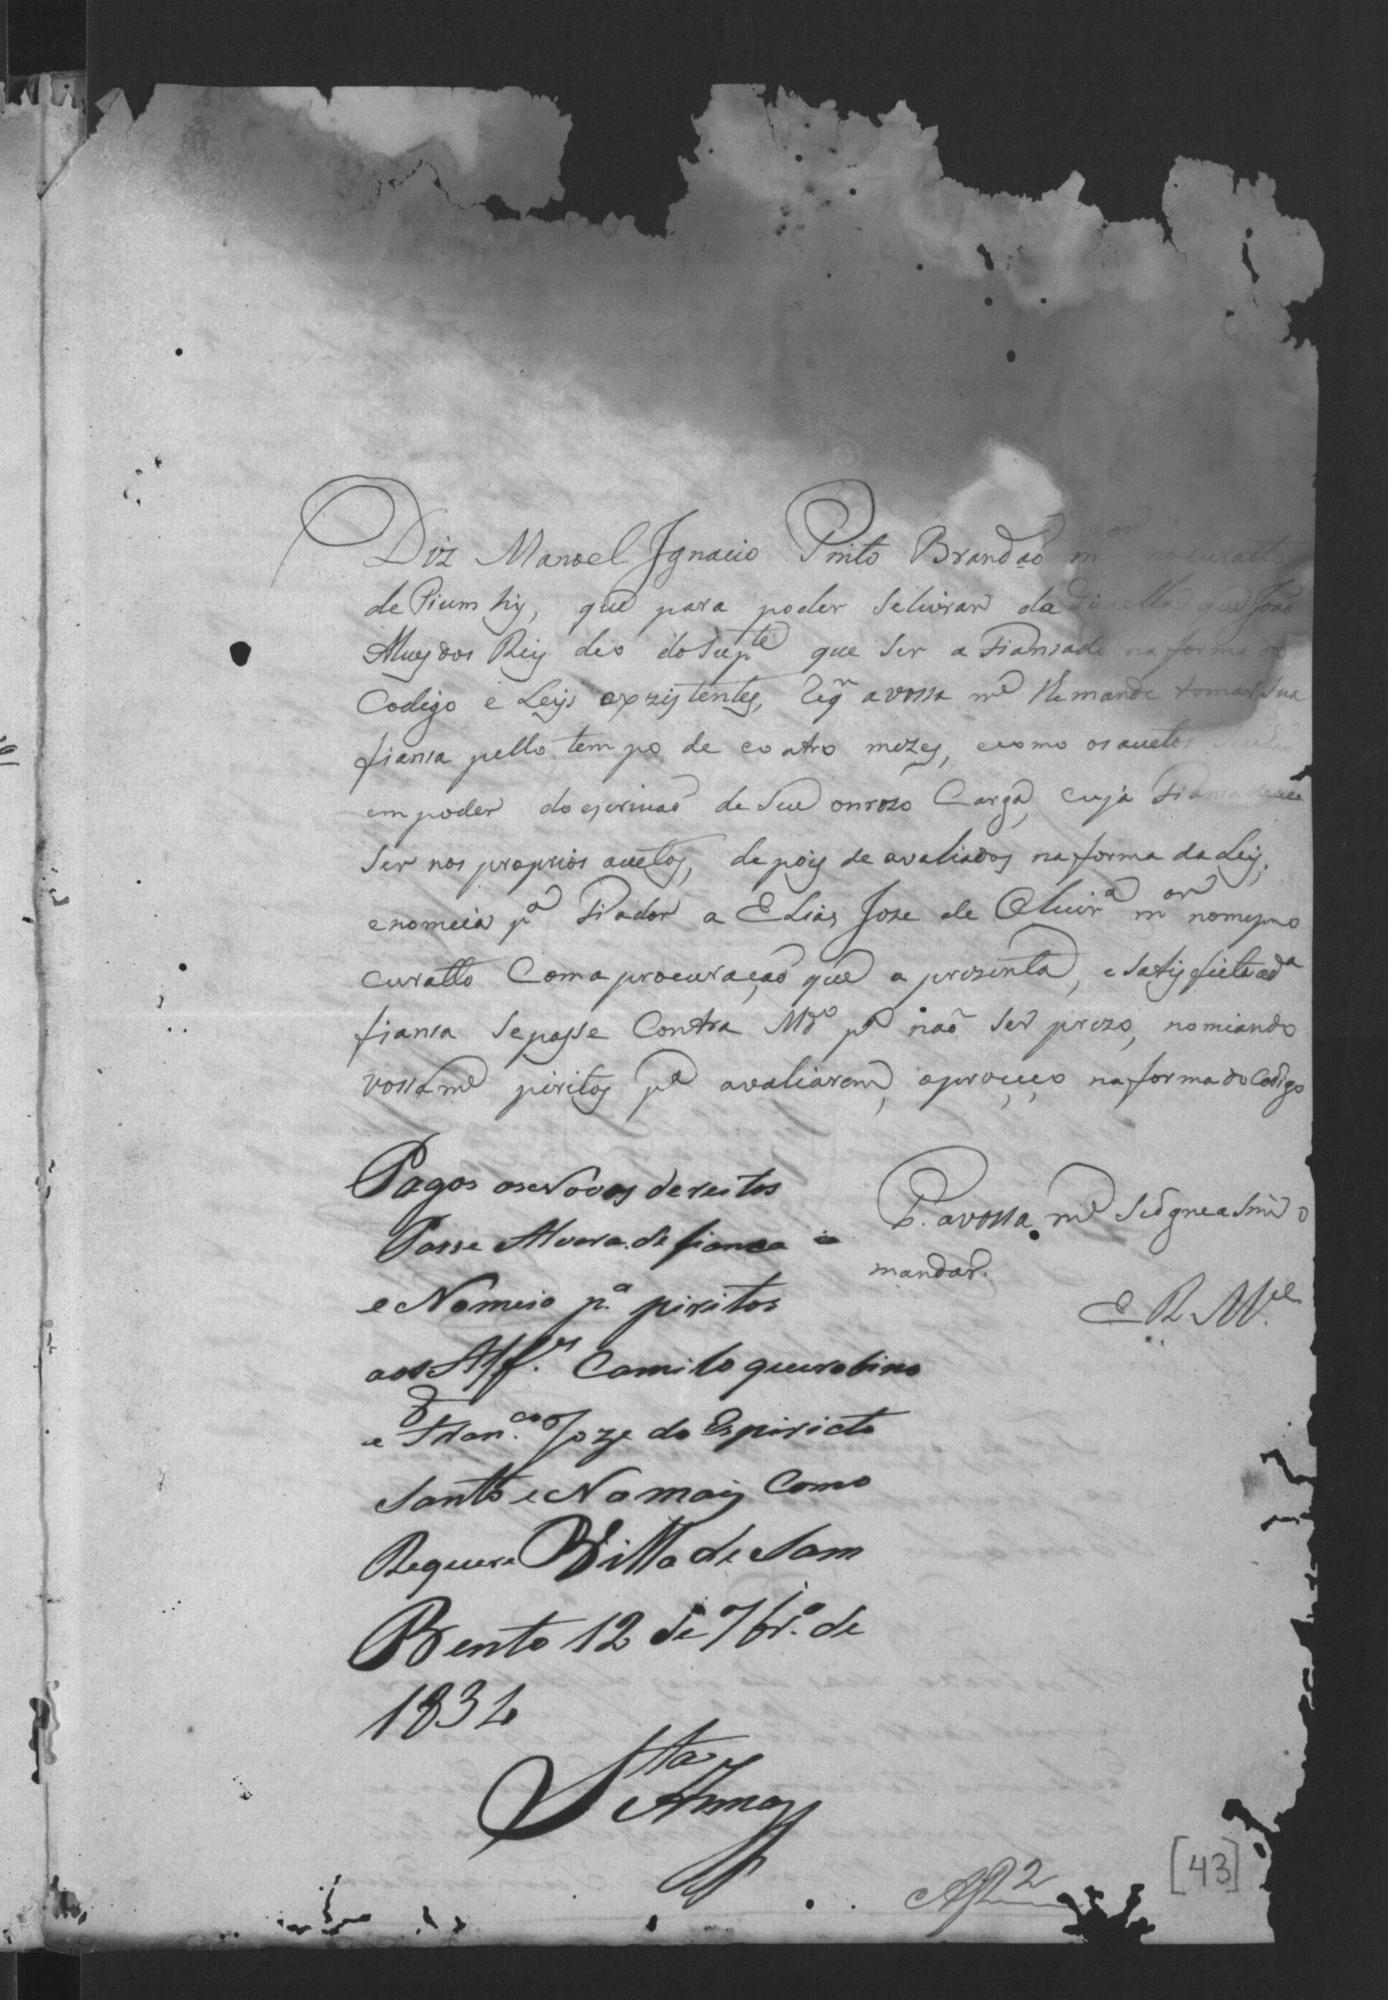 Diz Manoel Ignacio Pinto Brandaõ m.or no curatto
de Pium hy, que para poder Selivrar da que Joaõ
Alvez dos Reiz deo do Supte quer ser a Fiansado na forma do
Codigo e Leys exzistentes, Reqr a vossa me lhe mande tomar Sua
fiansa pello tempo de coatro mezes, e como os auctos
em poder do escrivaõ de Seu onrozo Cargo, cuja Fiansa deve
Ser nos proprios auctos, depois de avaliados na forma da Ley,
e nomeia pa Fiador a Elias Jose de Oliveira mor no mesmo
curatto Com a procuraçaõ que a prezenta, e satisfieta ada
fiansa Sepasse Contra Mdo pa naõ Ser prezo, nomiando
vossa me piritos pa avaliarem, o proceço na forma do Codigo
P. a vossa me Se dgne a Sim o
mandar.
E R Mce
Pagos os Novos dereitos
Passe Alvara de fianca
e Nomeio p.a piritos
aos Alf.es Camilo queirobino
e Fran.co Joze do Espiricto
Santo e No mais Como
Requere Villa de Sam
Bento 12 de 7br.o de
1834
Sta Anna
[43]